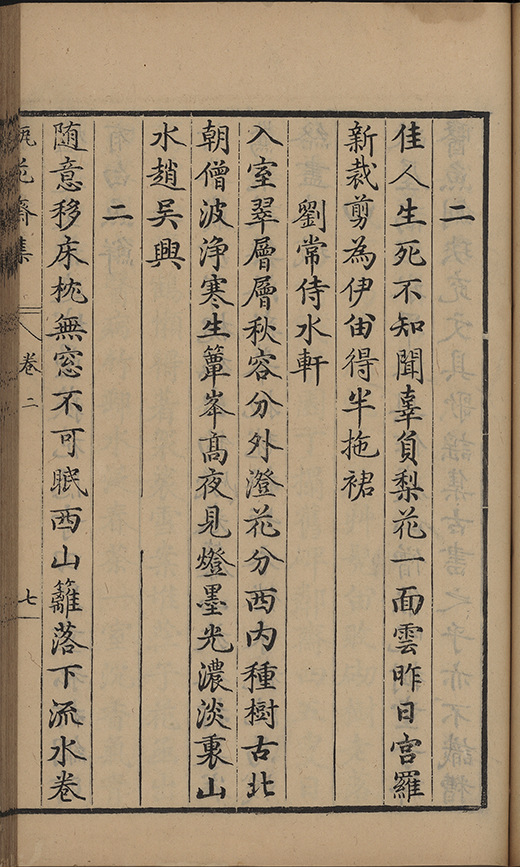 二
佳人生死不知聞辜負梨花一面雲昨日宮羅
新裁剪為伊留得半拖裙
劉常侍水軒
入室翠層層秋容分外澄花分西内種樹古北
朝僧波淨寒生簟峯髙夜見燈墨光濃淡裏山
水趙吳興
二
随意移床枕無窓不可眠西山籬落下流水卷
瓶花齋集
卷二
七